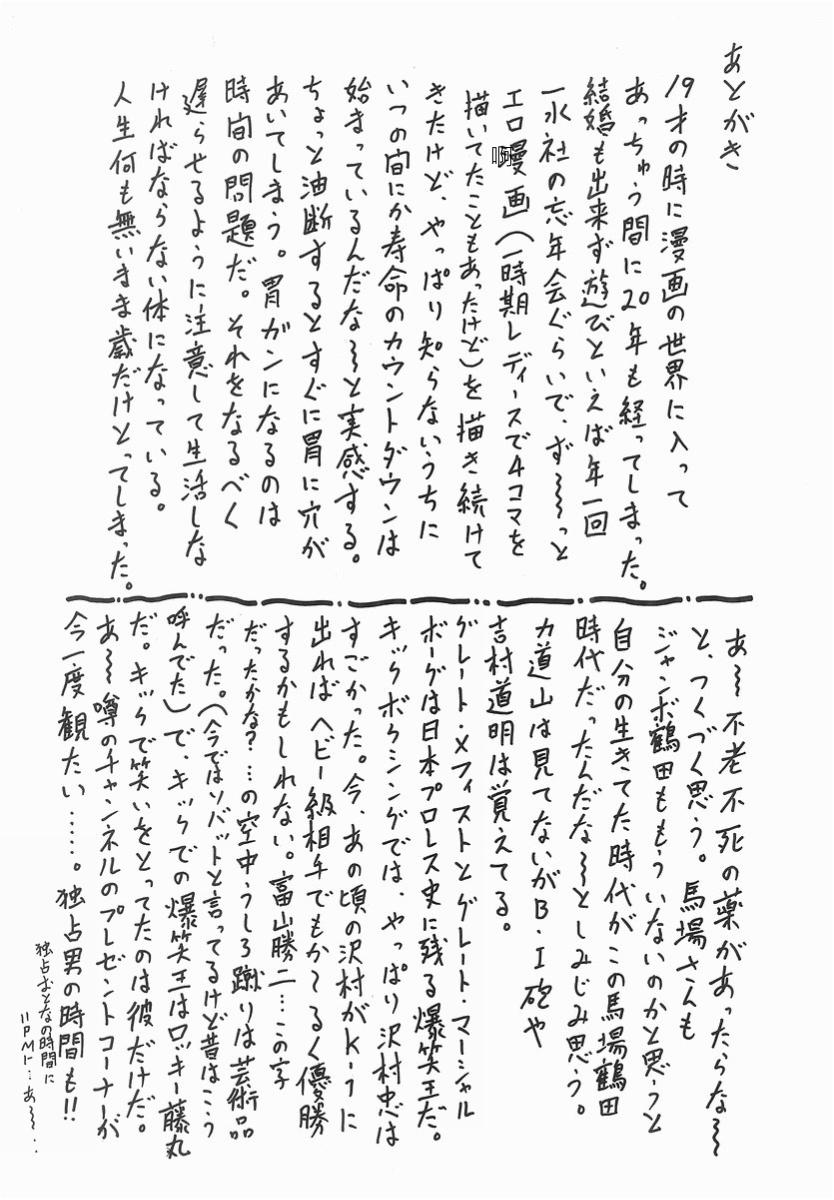 あとがき
19才の時に漫画の世界に入って
あっちゅう間に20年も経ってしまった。
結婚も出来ず遊びといえば年一回
一水社の忘年会ぐらいで、ず〜〜っと
エロ漫画(一時期レディースで4コマを
啊
描いてたこともあったけど)を描き続けて
きたけど、やっぱり知らないうちに
いつの間にか寿命のカウントダウンは
始まっているんだな〜と実感する。
ちょっと油断するとすぐに胃に穴が
あいてしまう。胃ガンになるのは
時間の問題だ。それをなるべく
遅らせるように注意して生活しな
ければならない体になっている。
人生何も無いまま歳だけとってしまった。
あ〜不老不死の薬があったらな〜
と、つくづく思う。馬場さんも
ジャンボ鶴田ももういないのかと思うと
自分の生きてた時代がこの馬場鶴田
時代だったんだな〜としみじみ思う。
力道山は見てないがB・I砲や
吉村道明は覚えてる。
グレート・メフィストとグレート・マーシャル
ボーグは日本プロレス史に残る爆笑王だ。
キックボクシングでは、やっぱり沢村忠は
すごかった。今、あの頃の沢村がK-1に
出ればヘビー級相手でもかてるく優勝
するかもしれない。富山勝二…この字
だったかな?…の空中うしろ蹴りは芸術品
だった。(今ではソバットと言ってるけど昔はこう
呼んでた)で、キックでの爆笑王はロッキー藤丸
だ。キックで笑いをとってたのは彼だけだ。
あ〜噂のチャンネルのプレゼントコーナーが
今一度観たい……。独占男の時間も!!
独占おとなの時間に
11PMに…あ〜〜…